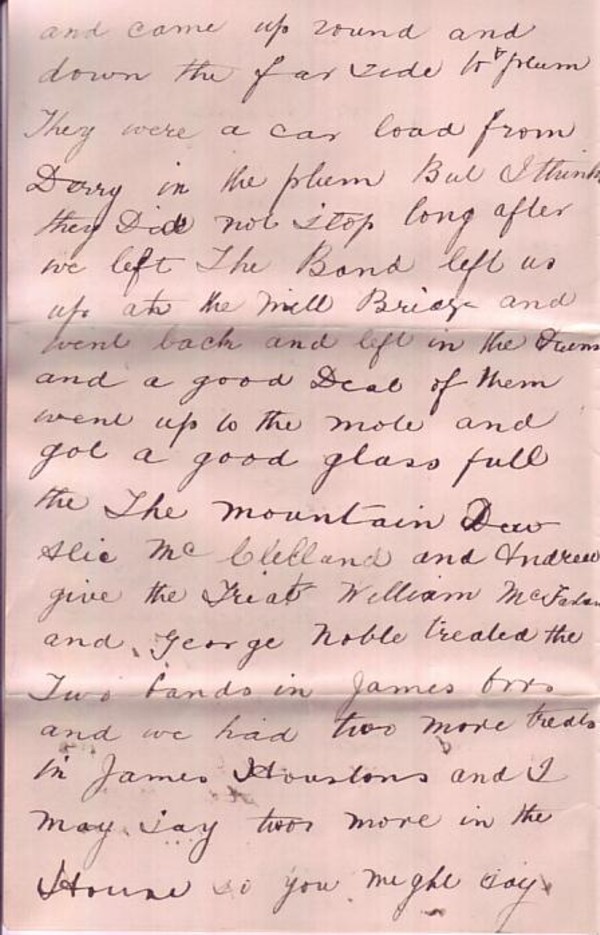 and came up round and
down the far side to plum
They were a car load from
Derry in the plum But I think
they Did not stop long after
we left The Band left us
up at the mill Bridge and
went back and left in the Drums
and a good Deal of them
went up to the mole and
got a good glass full
the The mountain Dew
Mc Clelland and Andrew
give the Treat William McFadan
and George Noble treated the
Two bands in James Orrs
and we had two more treats
in James Houstons and I
may say two more in the
House so you might say